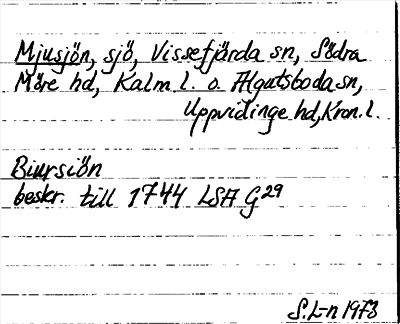 Mjusjön, sjö, Vissefjärda sn, Södra
Möre hd, Kalm l. o. Algutsboda sn,
Uppvidinge hd, Kron. l.
Biursiön
beskr. till 1744 LSA G29
S. L-n 1973